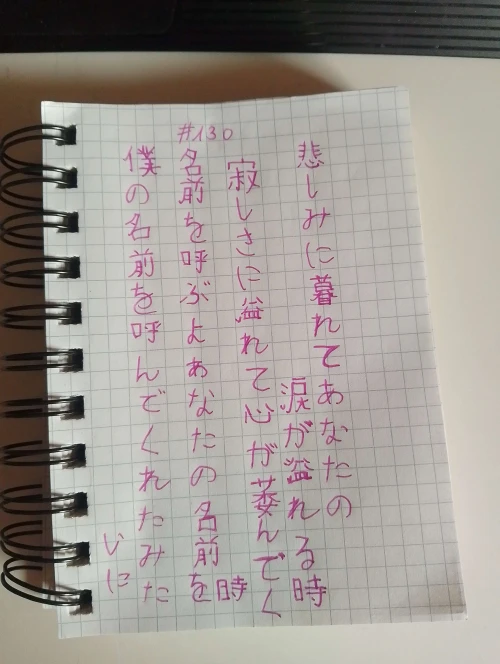 #130
悲しみに暮れてあなたの
涙が溢れる時
寂しさに溢れて心が萎んでく
時
名前を呼ぶよあなたの名前を
僕の名前を呼んでくれたみた
いに